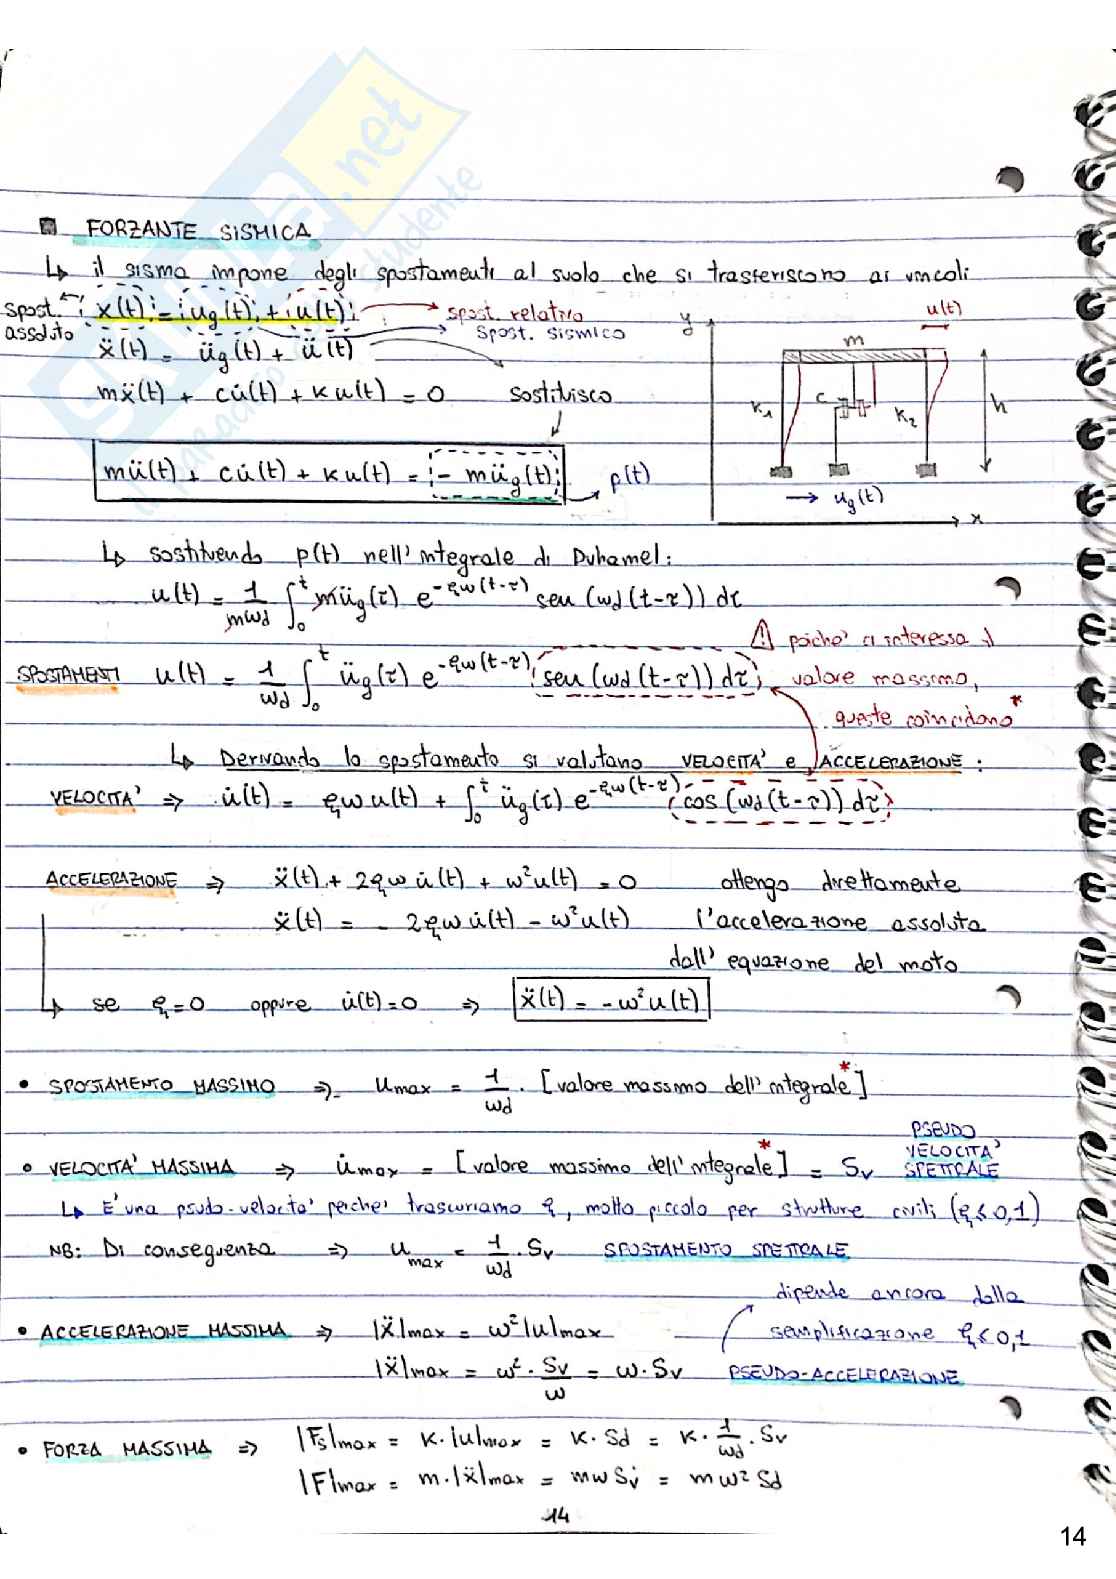 FORZANTE SISMICA
↳ il sisma impone degli spostamenti al suolo che si trasferiscono ai vincoli
spost. assoluto ← x(t) = ug(t) + u(t) → spost. relativo
→ spost. sismico
ẍ(t) = üg(t) + ü(t)
mẍ(t) + cu̇(t) + ku(t) = 0 sostituisco
mü(t) + cu̇(t) + ku(t) = - müg(t) → p(t)
y
u(t)
m
k1
c
k2
h
→ ug(t)
x
↳ sostituendo p(t) nell'integrale di Duhamel:
u(t) = 1/mωd ∫₀ᵗ müg(τ) e^-ξω(t-τ) sen(ωd(t-τ)) dτ
SPOSTAMENTI u(t) = 1/ωd ∫₀ᵗ üg(τ) e^-ξω(t-τ) sen(ωd(t-τ)) dτ
⚠ poiche' ci interessa il
valore massimo,
queste coincidono *
↳ Derivando lo spostamento si valutano VELOCITA' e ACCELERAZIONE:
VELOCITA' ⇒ u̇(t) = ξωu(t) + ∫₀ᵗ üg(τ) e^-ξω(t-τ) cos(ωd(t-τ)) dτ
ACCELERAZIONE ⇒ ẍ(t) + 2ξωu̇(t) + ω²u(t) = 0 ottengo direttamente
ẍ(t) = - 2ξωu̇(t) - ω²u(t) l'accelerazione assoluta
dall'equazione del moto
↳ se ξ=0 oppure u̇(t)=0 ⇒ ẍ(t) = -ω²u(t)
• SPOSTAMENTO MASSIMO ⇒ umax = 1/ωd · [valore massimo dell'integrale*]
• VELOCITA' MASSIMA ⇒ u̇max = [valore massimo dell'integrale*] = Sv PSEUDO VELOCITA' SPETTRALE
↳ E' una psudo-velocita' perche' trascuriamo ξ, molto piccolo per strutture civili (ξ≤0,1)
NB: Di conseguenza ⇒ umax = 1/ωd · Sv SPOSTAMENTO SPETTRALE
dipende ancora dalla
semplificazione ξ≤0,1
• ACCELERAZIONE MASSIMA ⇒ |ẍ|max = ω²|u|max
|ẍ|max = ω² · Sv/ω = ω·Sv PSEUDO-ACCELERAZIONE
• FORZA MASSIMA ⇒ |Fs|max = k·|u|max = k·Sd = k·1/ωd·Sv
|F|max = m·|ẍ|max = mωSv = mω²Sd
14
14